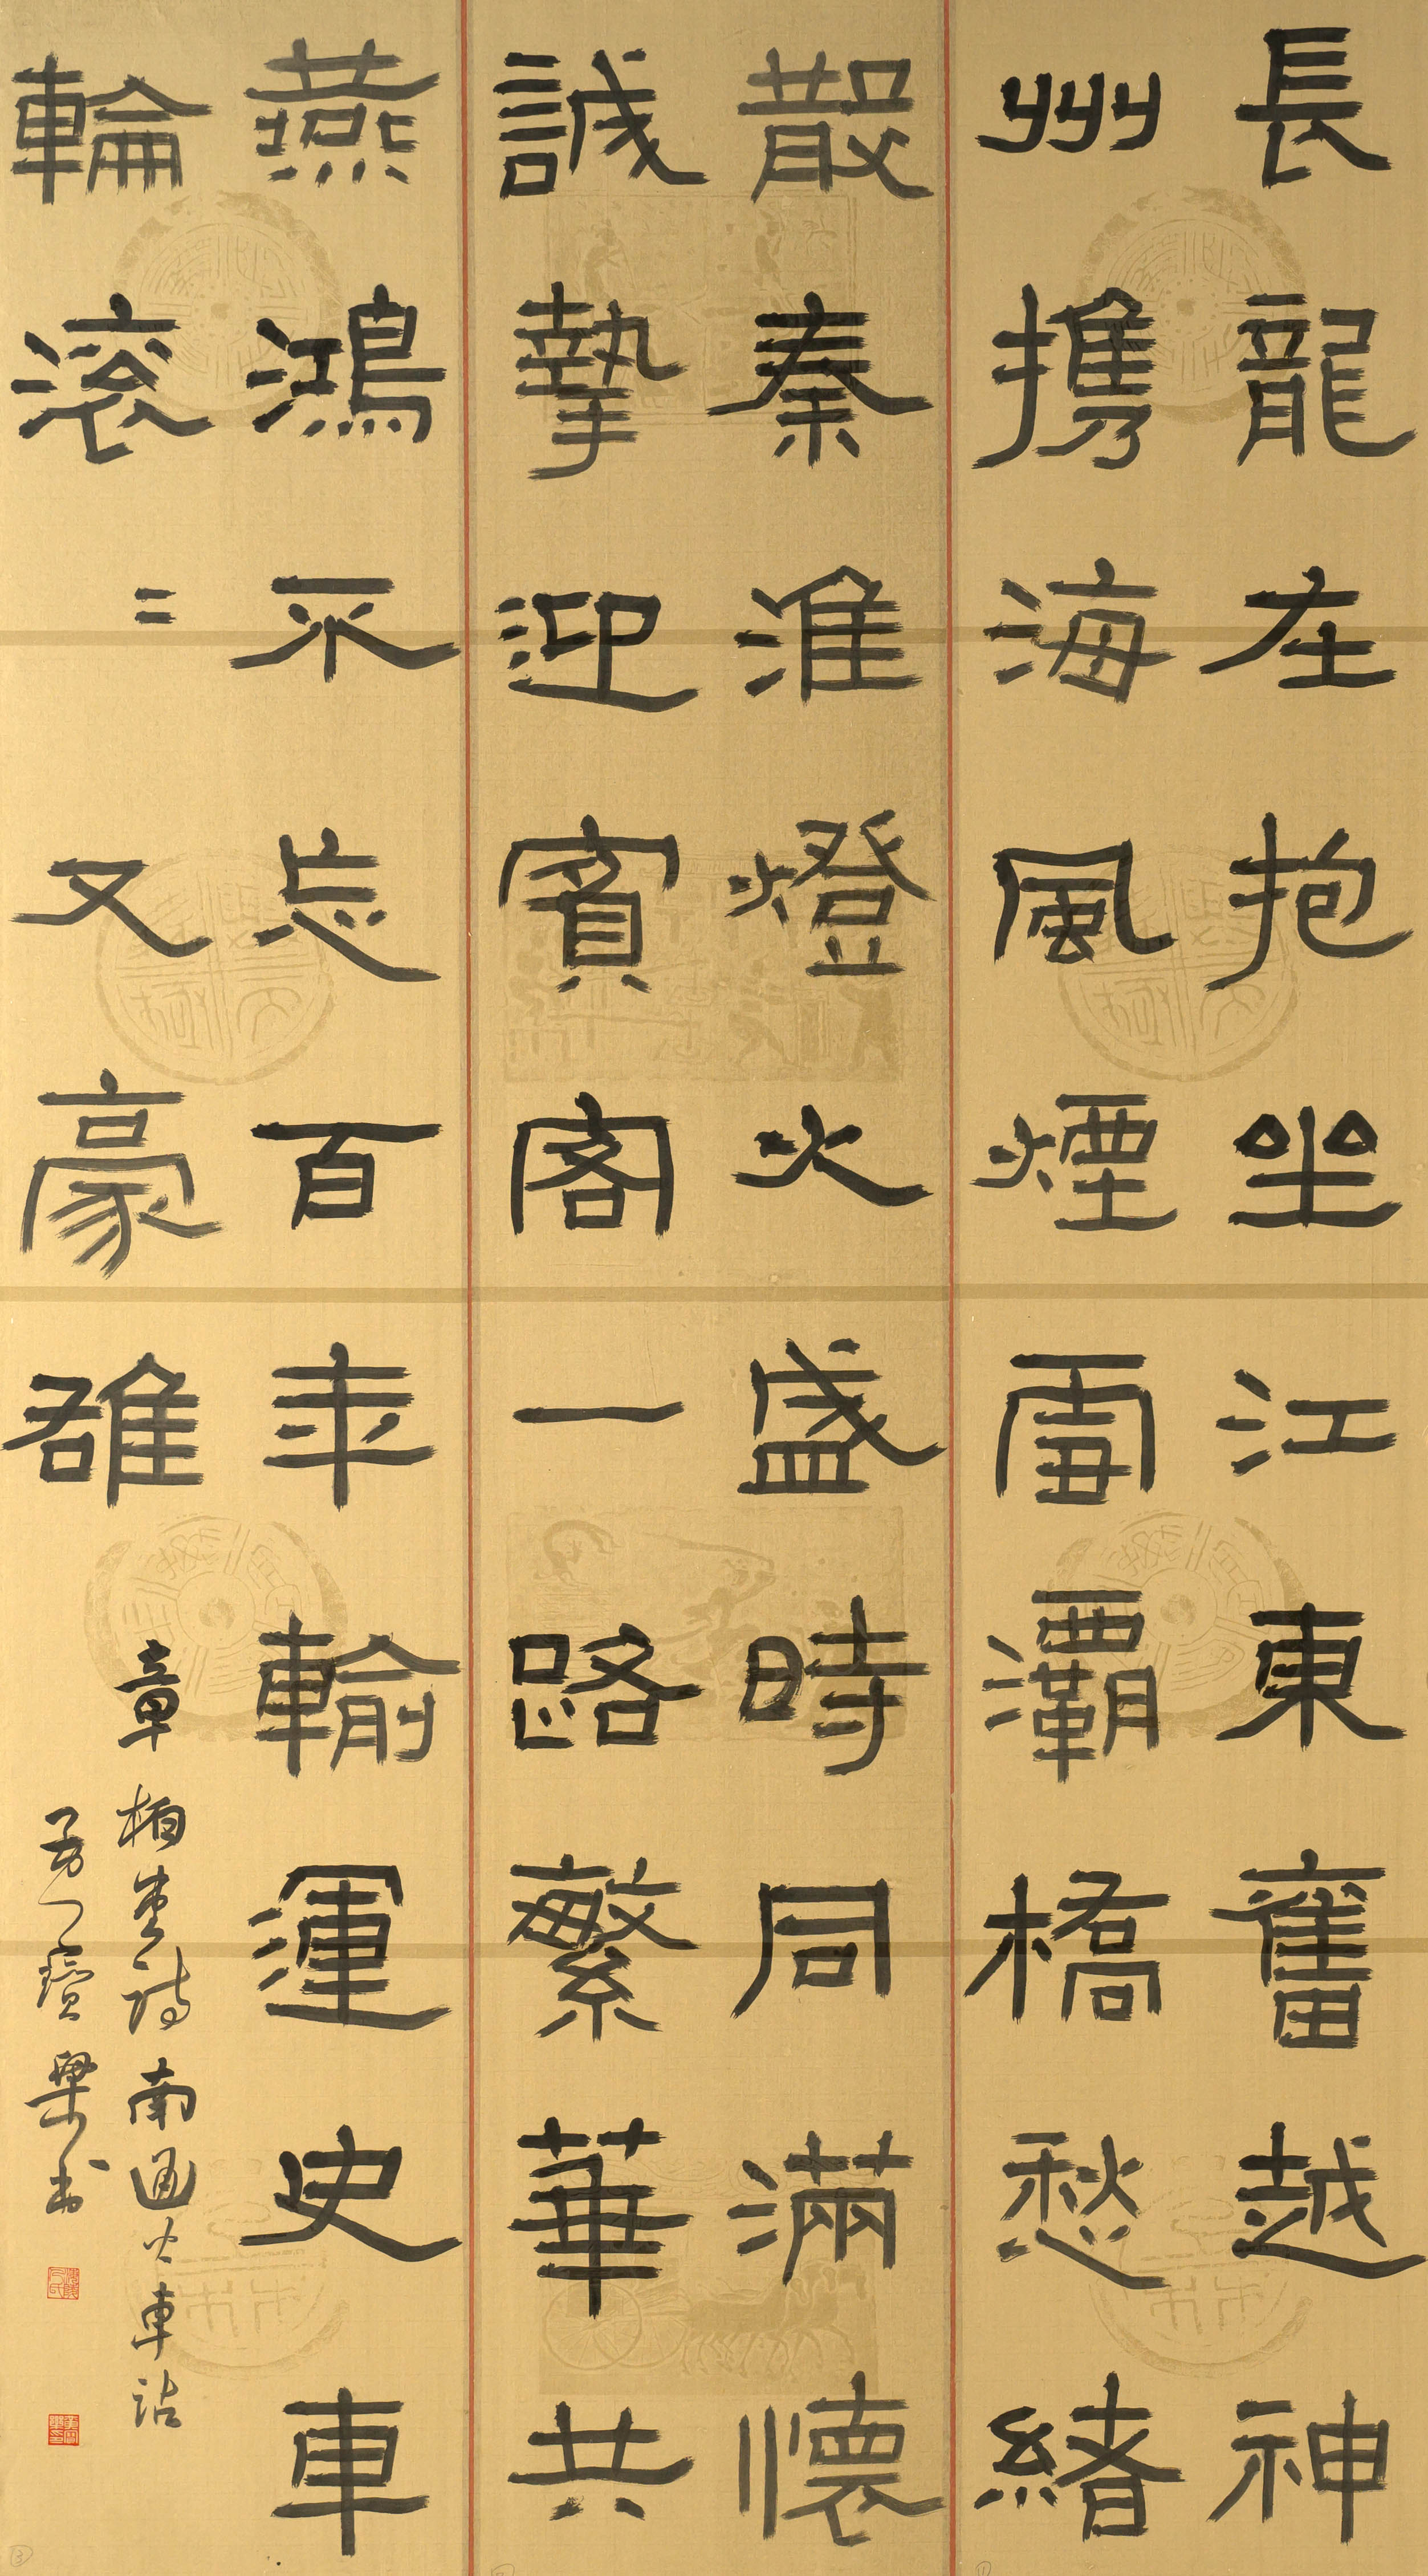 長龍在抱坐江東奮越神
州携海風煙雪灞橋愁緒
散秦淮燈火盛時同滿懷
誠摯迎賓客一路繁華共
燕鴻不忘百年輸運史車
輪滚〻又豪雄
章柏詩南通火車站
書